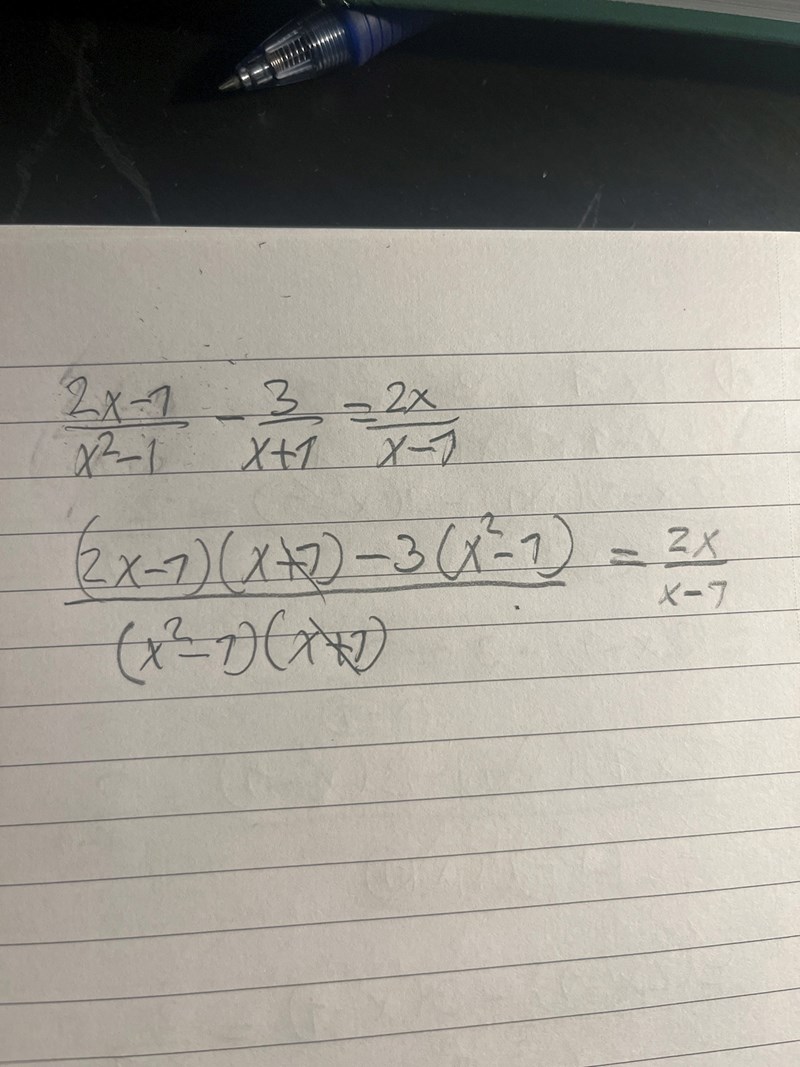 (2x-1)/(x²-1) - 3/(x+1) = 2x/(x-1)
((2x-1)(x+1)-3(x²-1))/((x²-1)(x+1)) = 2x/(x-1)